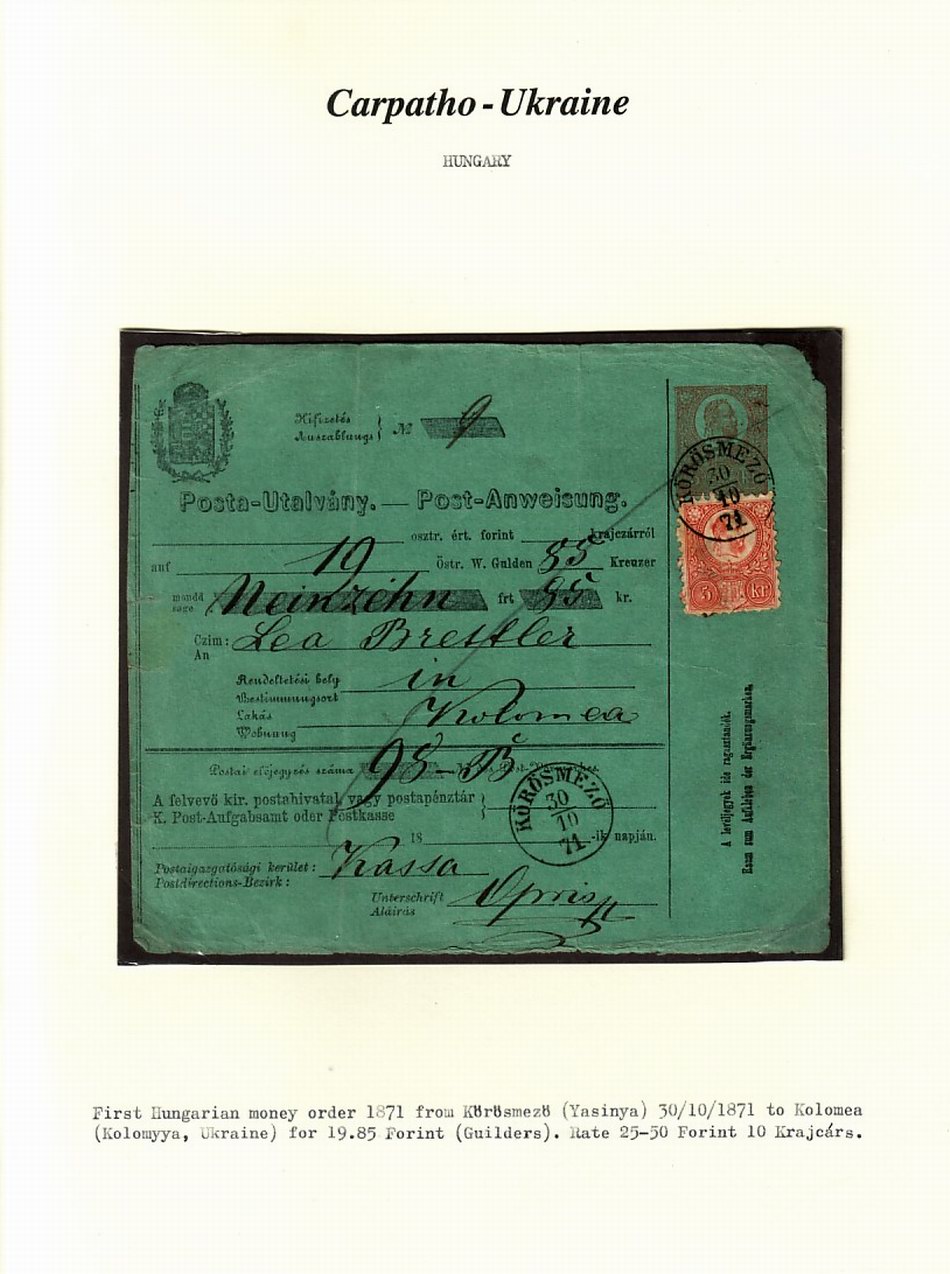 Carpatho - Ukraine
HUNGARY
Kifizetés
Auszahlungs } № 9
KÖRÖSMEZŐ
30
10
71
5 kr
Posta-Utalvány. — Post-Anweisung.
osztr. ért. forint krajczárról
auf 19 Östr. W. Gulden 85 Kreuzer
mondd
sage Neinzehn frt 85 kr.
Czim:
An Lea Brettler
Rendeltetési hely in
Bestimmungsort
Lakás Kolomea
Wohnung
Postai előjegyzés száma 98
A felvevő kir. postahivatal, vagy postapénztár
K. Post-Aufgabsamt oder Postkasse
KÖRÖSMEZŐ
30
10
71
18 -ik napján.
Postaigazgatósági kerület: Kassa
Postdirections-Bezirk:
Unterschrift
Aláírás
A levéljegyek ide ragasztandók.
Raum zum Aufkleben der Ergänzungsmarken.
First Hungarian money order 1871 from Körösmezö (Yasinya) 30/10/1871 to Kolomea
(Kolomyya, Ukraine) for 19.85 Forint (Guilders). Rate 25-50 Forint 10 Krajcárs.